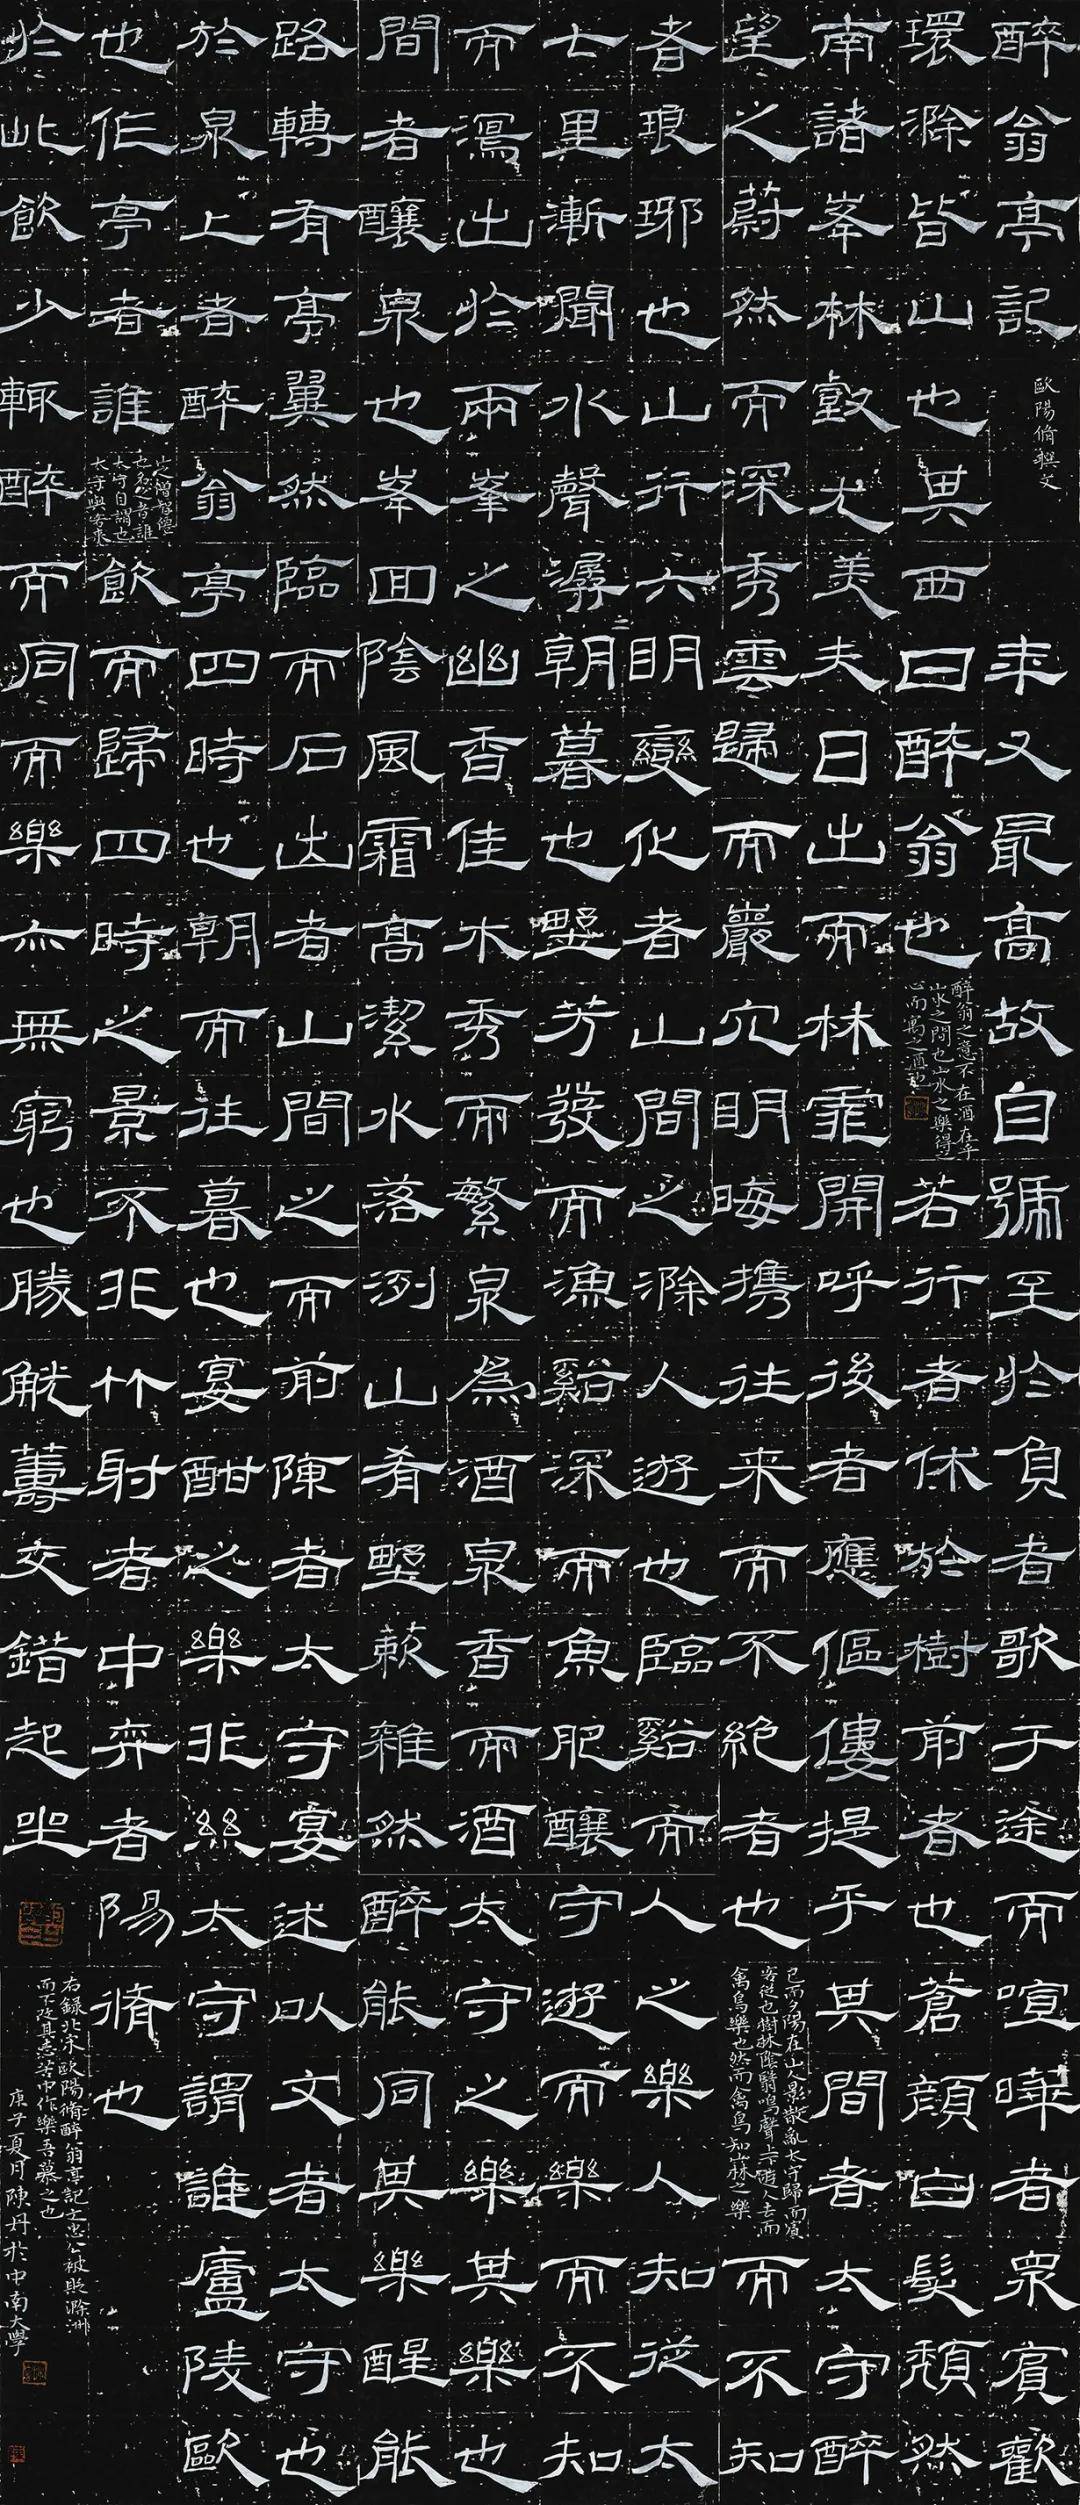 醉翁亭記
歐陽脩撰文
環滁皆山也其西
南諸峯林壑尤美
望之蔚然而深秀
者琅琊也山行六
七里漸聞水聲潺
而瀉出於兩峯之
間者釀泉也峯回
路轉有亭翼然臨
於泉上者醉翁亭
也作亭者誰
山之僧智僊
也名之者誰
太守自謂也
太守與客來
飲
於此飲少輒醉而
年又最高故自號
曰醉翁也
醉翁之意不在酒在乎
山水之間也山水之樂得之
心而寓之酒也
若
夫日出而林霏開
雲歸而巖穴明晦
明變化者山間之
朝暮也野芳發而
幽香佳木秀而繁
陰風霜高潔水落
而石出者山間之
四時也朝而往暮
而歸四時之景不
同而樂亦無窮也
至於負者歌于途
行者休於樹前者
呼後者應傴僂提
携往来而不絶者
滁人遊也臨谿而
漁谿深而魚肥釀
泉為酒泉香而酒
洌山肴野蔌雜然
而前陳者太守宴
也宴酣之樂非絲
非竹射者中弈者
勝觥籌交錯起坐
而喧嘩者眾賓歡
也蒼顏白髮頹然
乎其間者太守醉
也
已而夕陽在山人影散亂太守歸而賓
客從也樹林陰翳鳴聲上下遊人去而
禽鳥樂也然而禽鳥知山林之樂
而不知
人之樂人知從太
守遊而樂而不知
太守之樂其樂也
醉能同其樂醒能
述以文者太守也
太守謂誰廬陵歐
陽脩也
右錄北宋歐陽脩醉翁亭記文忠公被貶滁州
而不改其志苦中作樂吾慕之也
庚子夏月陳丹於中南大學